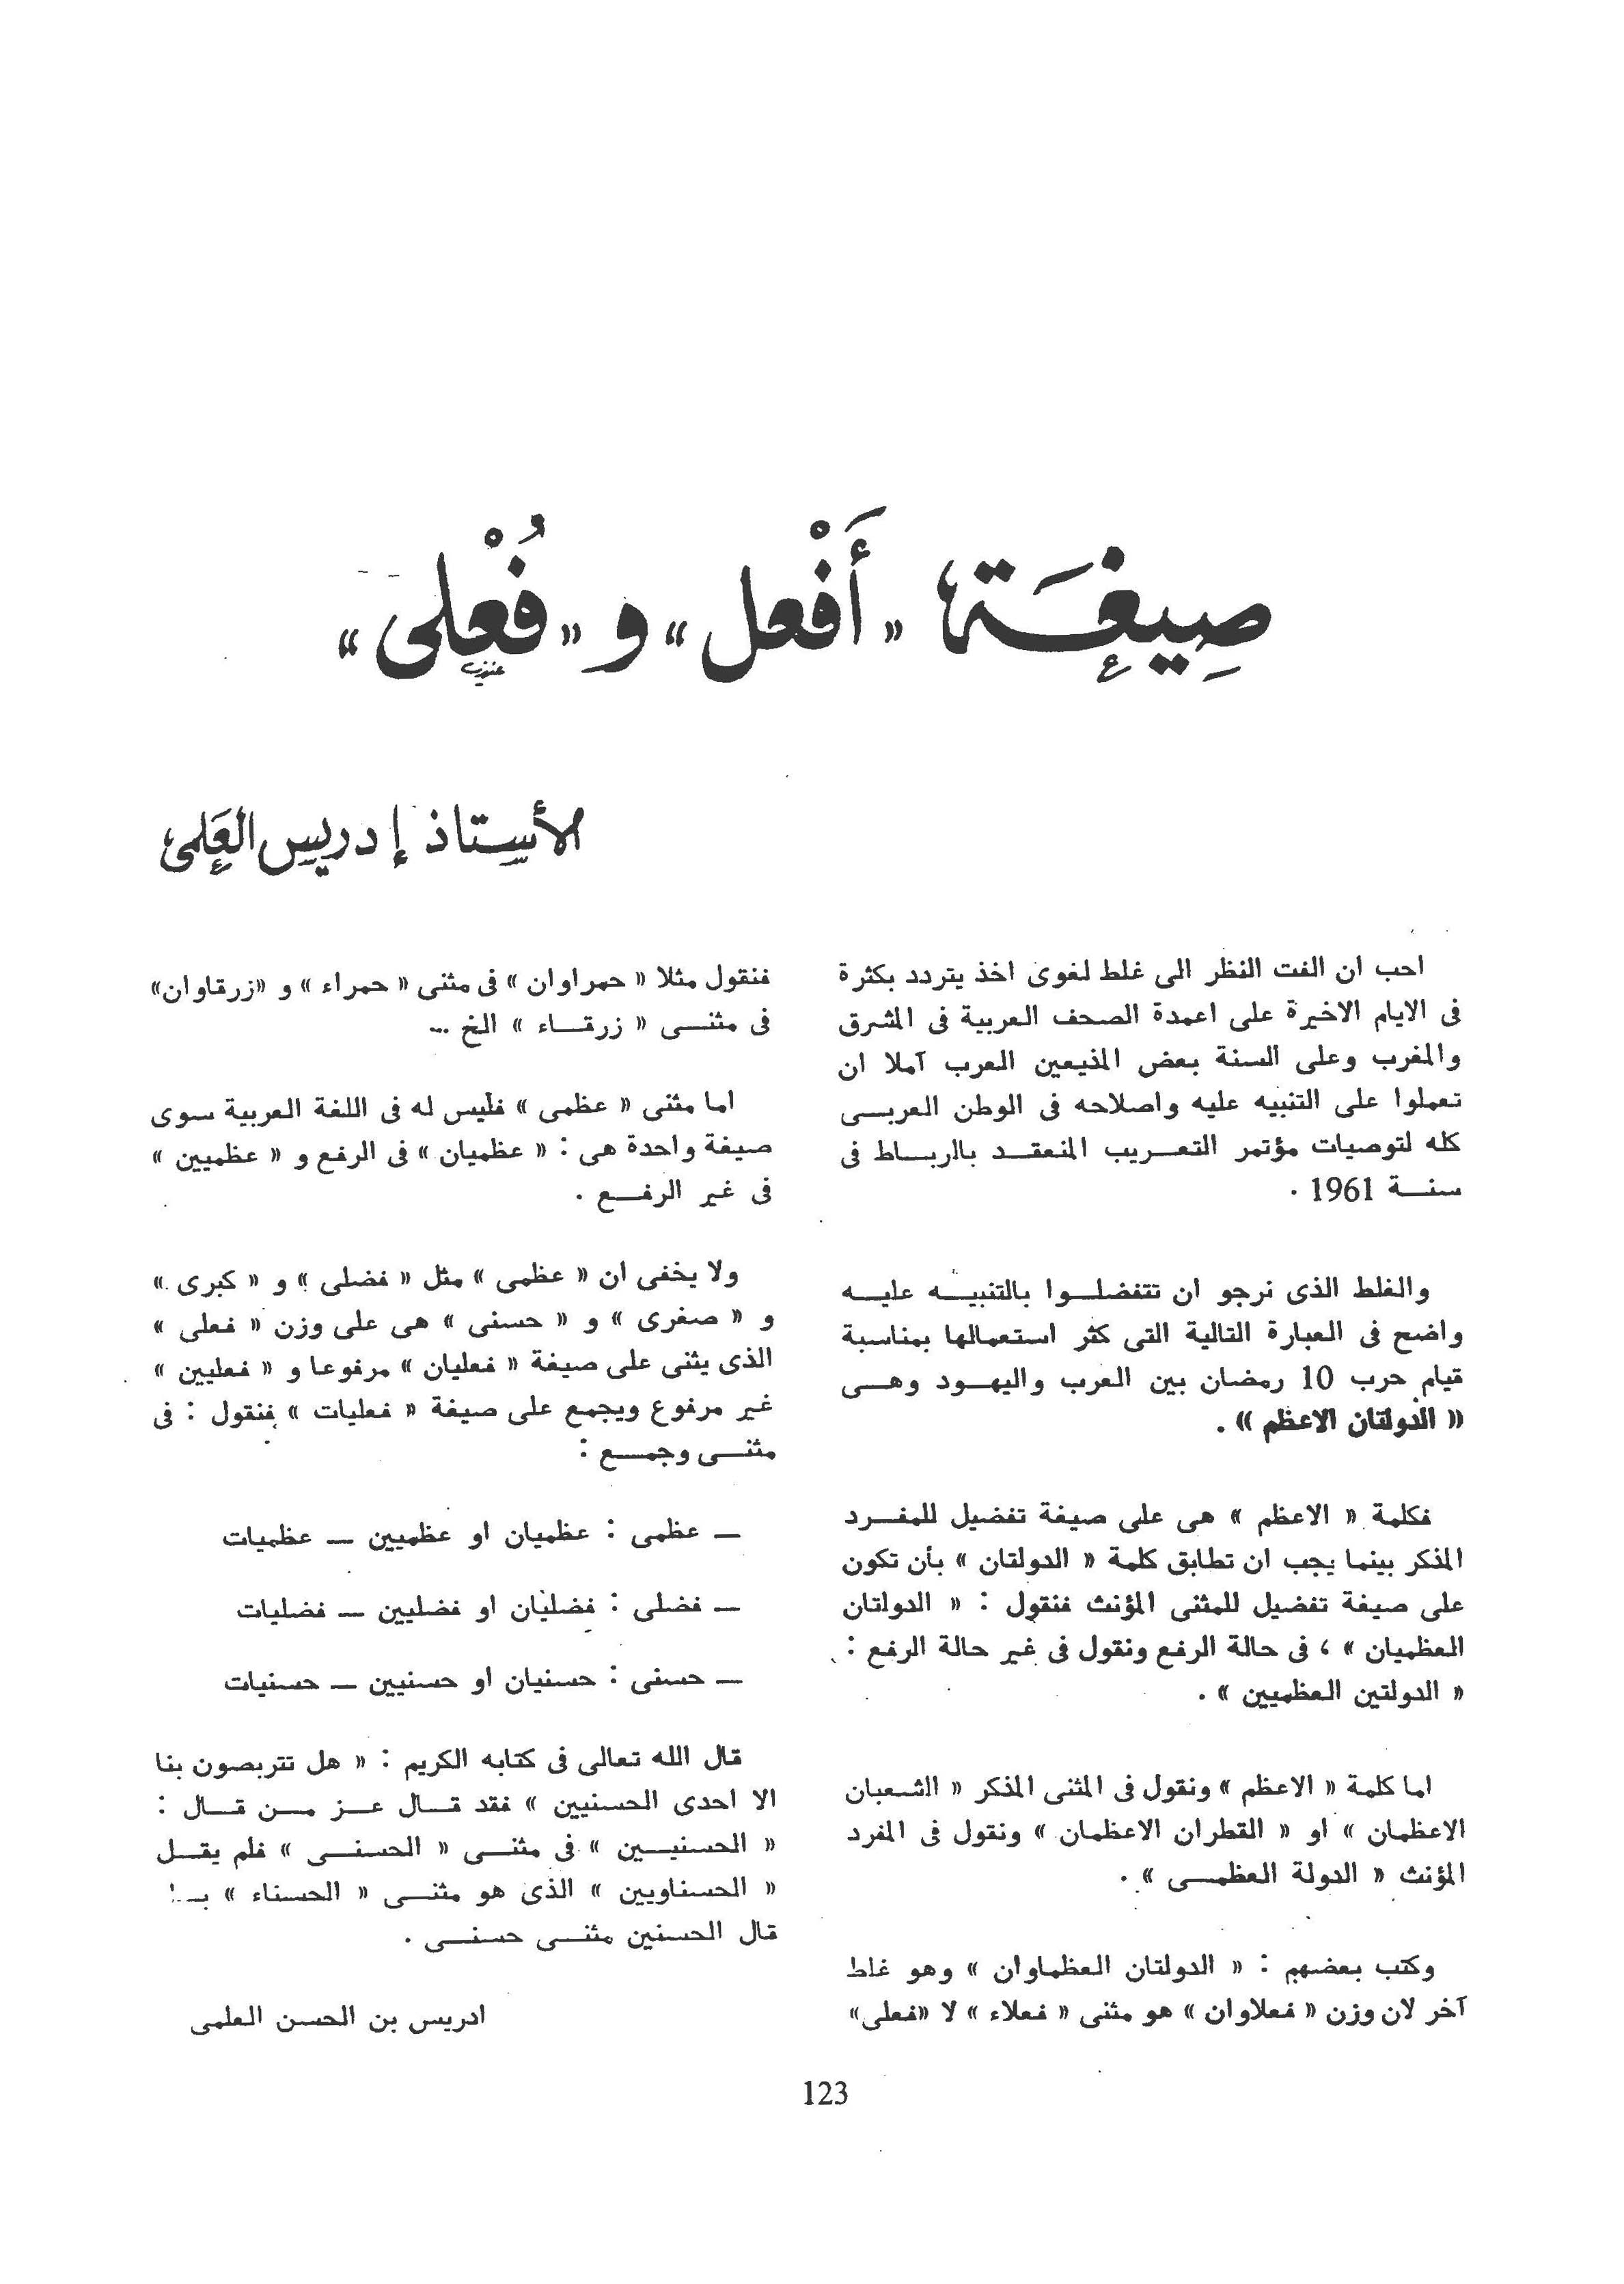 صيغة «أَفْعل» و «فُعْلى»
الأستاذ إدريس العَلمي
احب ان الفت النظر الى غلط لغوى اخذ يتردد بكثرة
فى الايام الاخيرة على اعمدة الصحف العربية فى المشرق
والمغرب وعلى السنة بعض المذيعين العرب آملا ان
تعملوا على التنبيه عليه واصلاحه فى الوطن العربى
كله لتوصيات مؤتمر التعريب المنعقد بالرباط فى
سنة 1961 .
والغلط الذى نرجو ان تتفضلوا بالتنبيه عليه
واضح فى العبارة التالية التى كثر استعمالها بمناسبة
قيام حرب 10 رمضان بين العرب واليهود وهى
« الدولتان الاعظم » .
فكلمة « الاعظم » هى على صيغة تفضيل للمفرد
المذكر بينما يجب ان تطابق كلمة « الدولتان » بأن تكون
على صيغة تفضيل للمثنى المؤنث فنقول : « الدولتان
العظميان » ، فى حالة الرفع ونقول فى غير حالة الرفع :
« الدولتين العظميين » .
اما كلمة « الاعظم » ونقول فى المثنى المذكر « الشعبان
الاعظمان » او « القطران الاعظمان » ونقول فى المفرد
المؤنث « الدولة العظمى » .
وكتب بعضهم : « الدولتان العظماوان » وهو غلط
آخر لان وزن « فعلاوان » هو مثنى « فعلاء » لا «فعلى»
فنقول مثلا « حمراوان » فى مثنى « حمراء » و «زرقاوان»
فى مثنى « زرقاء » الخ ...
اما مثنى « عظمى » فليس له فى اللغة العربية سوى
صيغة واحدة هى : « عظميان » فى الرفع و « عظميين »
فى غير الرفع .
ولا يخفى ان « عظمى » مثل « فضلى » و « كبرى »
و « صغرى » و « حسنى » هى على وزن « فعلى »
الذى يثنى على صيغة « فعليان » مرفوعا و « فعليين »
غير مرفوع ويجمع على صيغة « فعليات » فنقول : فى
مثنى وجمع :
— عظمى : عظميان او عظميين — عظميات
— فضلى : فضليان او فضليين — فضليات
— حسنى : حسنيان او حسنيين — حسنيات
قال الله تعالى فى كتابه الكريم : « هل تتربصون بنا
الا احدى الحسنيين » فقد قال عز من قال :
« الحسنيين » فى مثنى « الحسنى » فلم يقل
« الحسناويين » الذى هو مثنى « الحسناء »
قال الحسنين مثنى حسنى .
ادريس بن الحسن العلمى
123